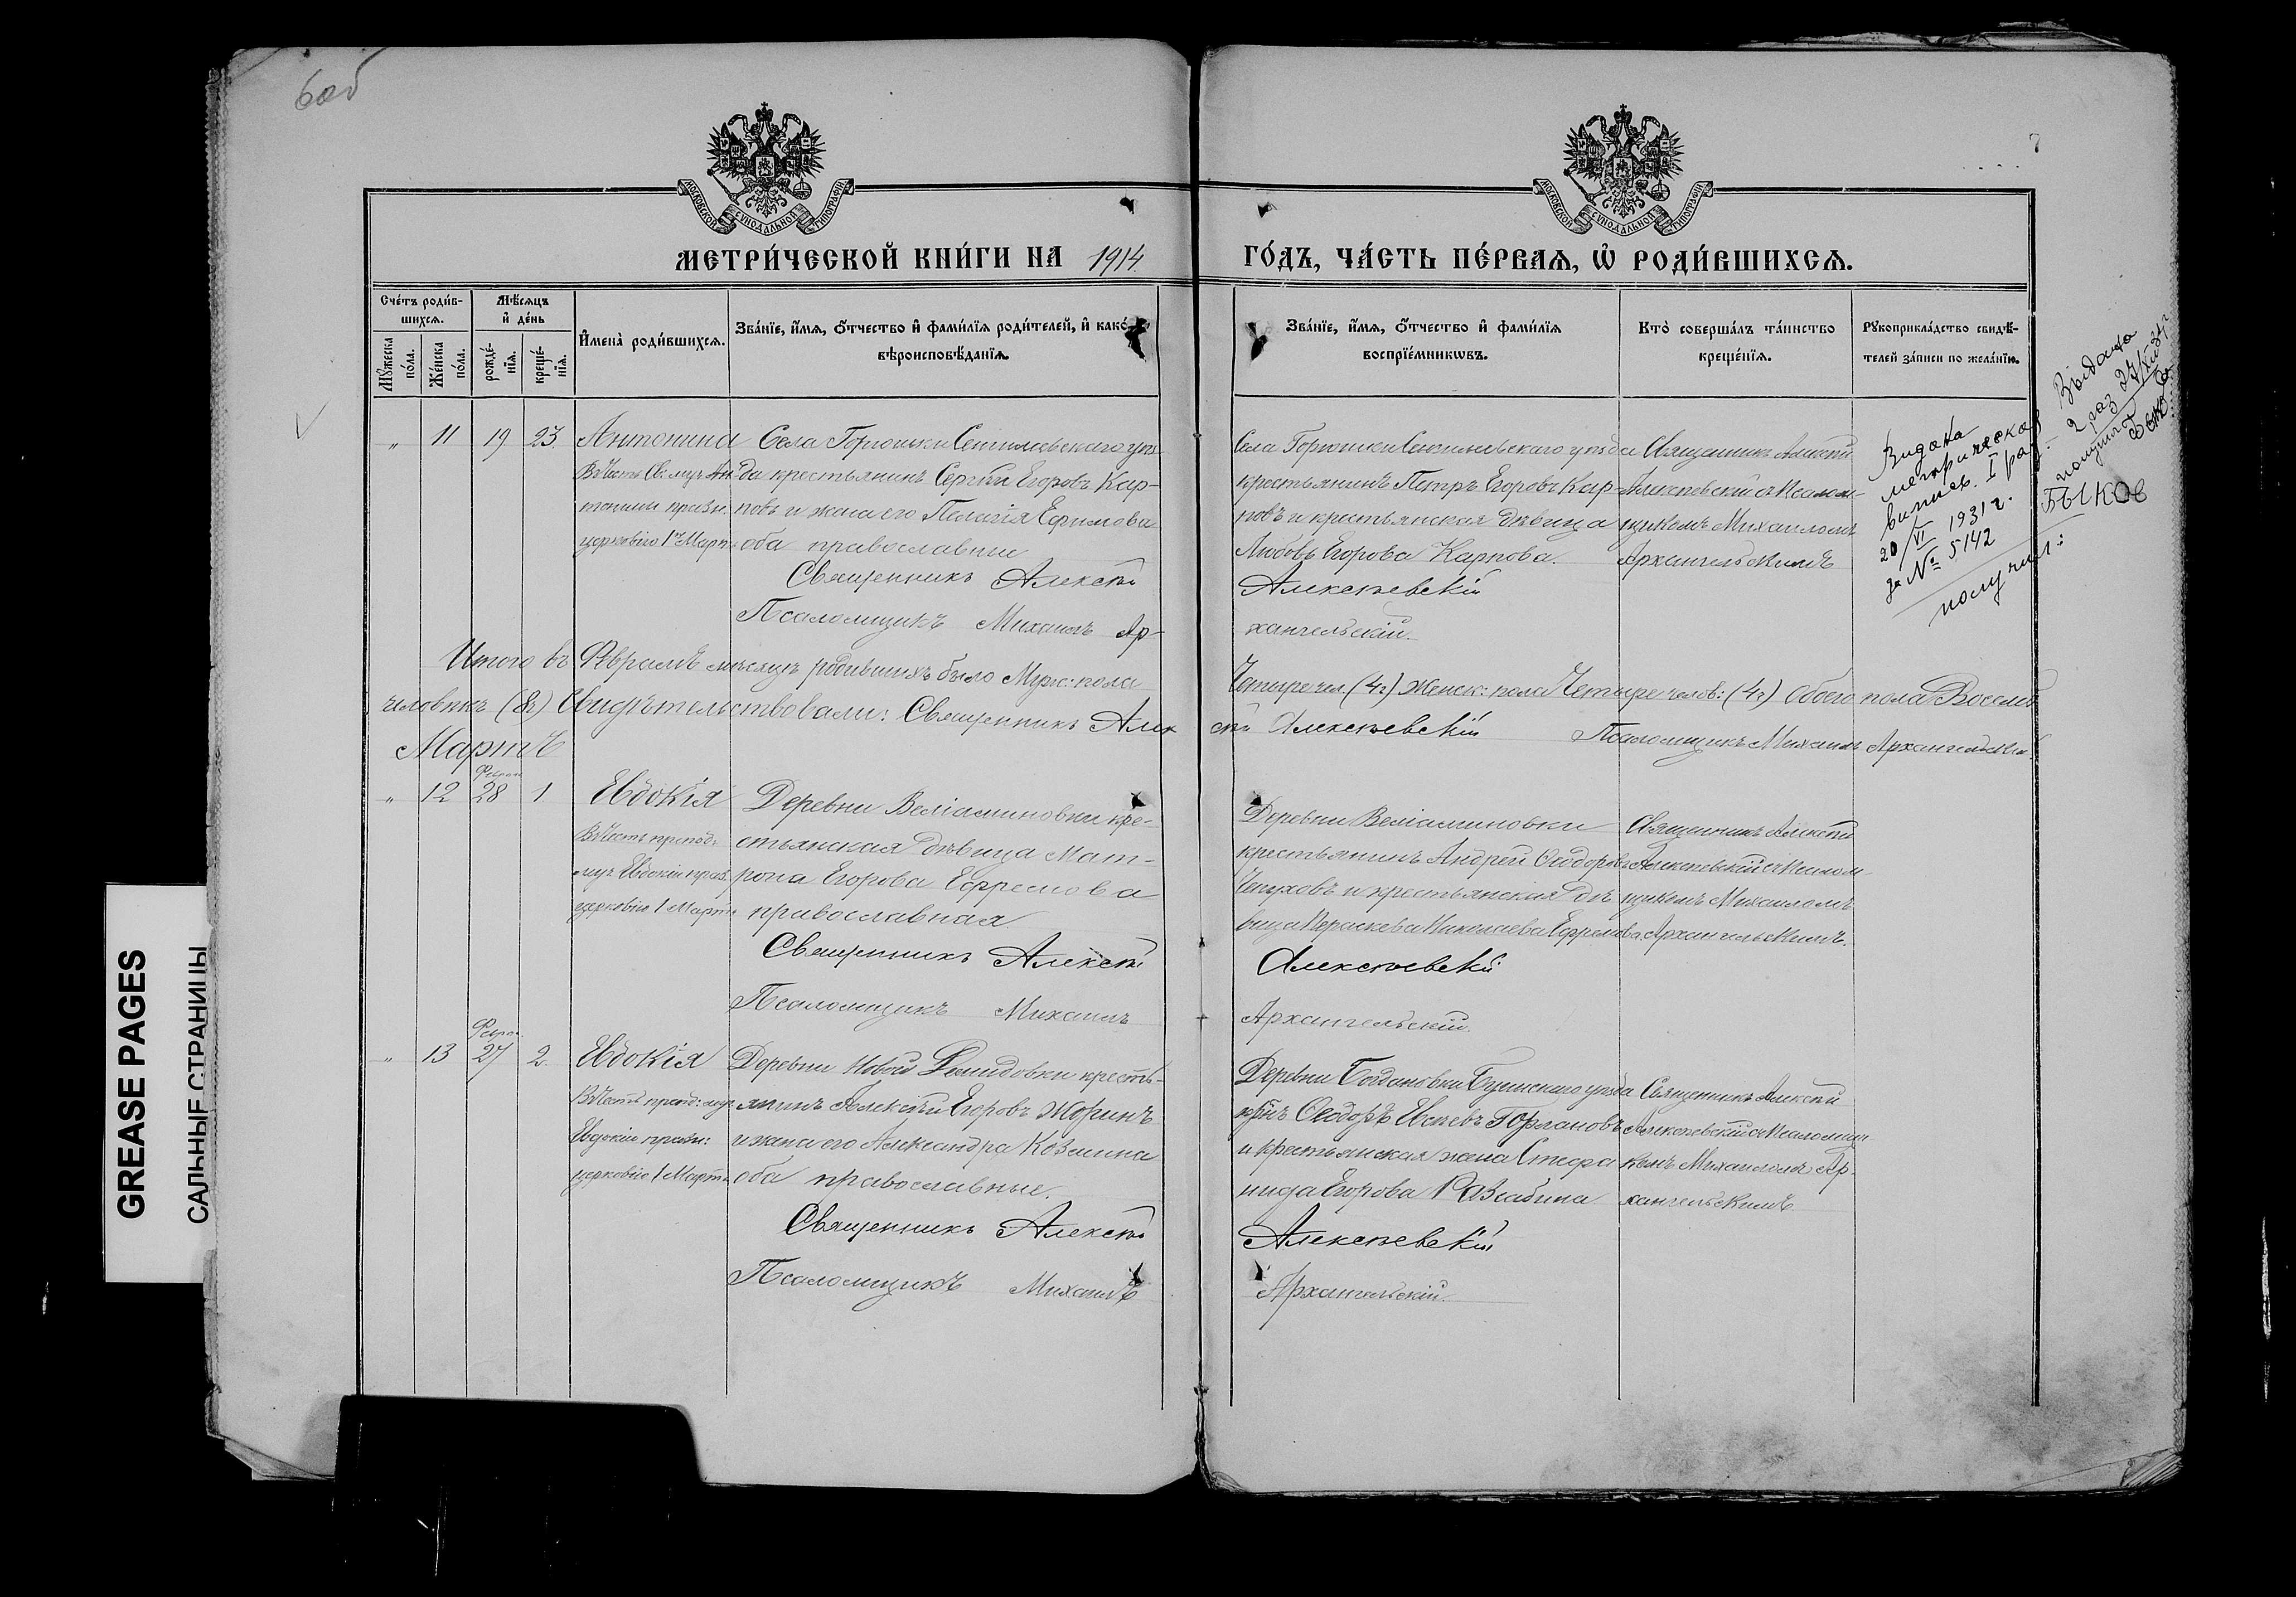 6об
7
МОСКОВСКОЙ СѴНОДАЛЬНОЙ ТИПОГРАФІИ
МОСКОВСКОЙ СѴНОДАЛЬНОЙ ТИПОГРАФІИ
МЕТРИ́ЧЕСКОЙ КНИ́ГИ НА 1914 ГО́ДЪ, ЧА́СТЬ ПЕ́РВАѦ, Ѡ҆ РОДИ́ВШИХСѦ.
Сче́тъ роди́в-
шихсѧ.
Мꙋ́жеска по́ла.
Же́нска по́ла.
Мѣ́сѧцъ
и҆ де́нь
рожде́-
нїѧ.
креще́-
нїѧ.
И҆мена̀ роди́вшихсѧ.
Зва́нїе, и҆́мѧ, ѻ҆́тчество и҆ фами́лїѧ роди́телей, и҆ како́
вѣроисповѣ́данїѧ.
Зва́нїе, и҆́мѧ, ѻ҆́тчество и҆ фами́лїѧ
воспрїе́мникѡвъ.
Кто̀ соверша́лъ та́инство
креще́нїѧ.
Рꙋкоприкла́дство свидѣ́-
телей за́писи по жела́нїю.
„ 11 19 23. Антонина
Въ честь Св. муч. Ан-
тонины празн.
церковію 1го Марта
Села Горюшки Сенгилеевскаго уѣз-
да крестьянинъ Сергѣй Егоровъ Кар-
повъ и жена его Пелагія Ефимова
оба православные
Священникъ Алексѣй
Псаломщикъ Михаилъ Ар-
Села Горюшки Сенгилеевскаго уѣзда
крестьянинъ Петръ Егоровъ Кар-
повъ и крестьянская дѣвица
Любовь Егорова Карпова.
Алексѣевскій
хангельскій.
Священникъ Алексѣй
Алексѣевскій съ Псалом-
щикомъ Михаиломъ
Архангельскимъ
Видана
метрическая
выпись. I раз.
20/VI 1931 г.
за № 5142
получил:
Выдана
2 раз 27/XII
получил
Быков
Итого въ Февралѣ мѣсяцѣ родившихъ было Муж: пола Четыре чел. (4) Женск: пола Четыре челов: (4) Обоего пола Восемь
человѣкъ (8) Свидѣтельствовали: Священникъ Алексѣй Алексѣевскій Псаломщикъ Михаилъ Архангельскій.
Мартъ
Февра.
„ 12 28 1 Евдокія
Въ честь препод:
муч. Евдокіи праз.
церковію 1 Марта
Деревни Веліаминовки кре-
стьянская дѣвица Мат-
рона Егорова Ефремова
православная
Священникъ Алексѣй
Псаломщикъ Михаилъ
Деревни Веліаминовки
крестьянинъ Андрей Ѳеодоровъ
и крестьянская дѣ-
вица Параскева Николаева Ефремова
Алексѣевскій
Архангельскій.
Священникъ Алексѣй
Алексѣевскій съ Псалом-
щикомъ Михаиломъ
Архангельскимъ.
Февра.
„ 13 27 2. Евдокія
Въ честь препод: муч
Евдокіи празн:
церковію 1 Марта
Деревни Новой Демидовки кресть-
янинъ Алексѣй Егоровъ Жоринъ
и жена его Александра Козмина
оба православные.
Священникъ Алексѣй
Псаломщикъ Михаилъ
Деревни Богдановки Буинскаго уѣзда
крнъ Ѳеодоръ Евсѣевъ
и крестьянская жена Стефа
нида Егорова
Алексѣевскій
Архангельскій.
Священникъ Алексѣй
Алексѣевскій съ Псаломщи
комъ Михаиломъ Ар-
хангельскимъ
GREASE PAGES
САЛЬНЫЕ СТРАНИЦЫ